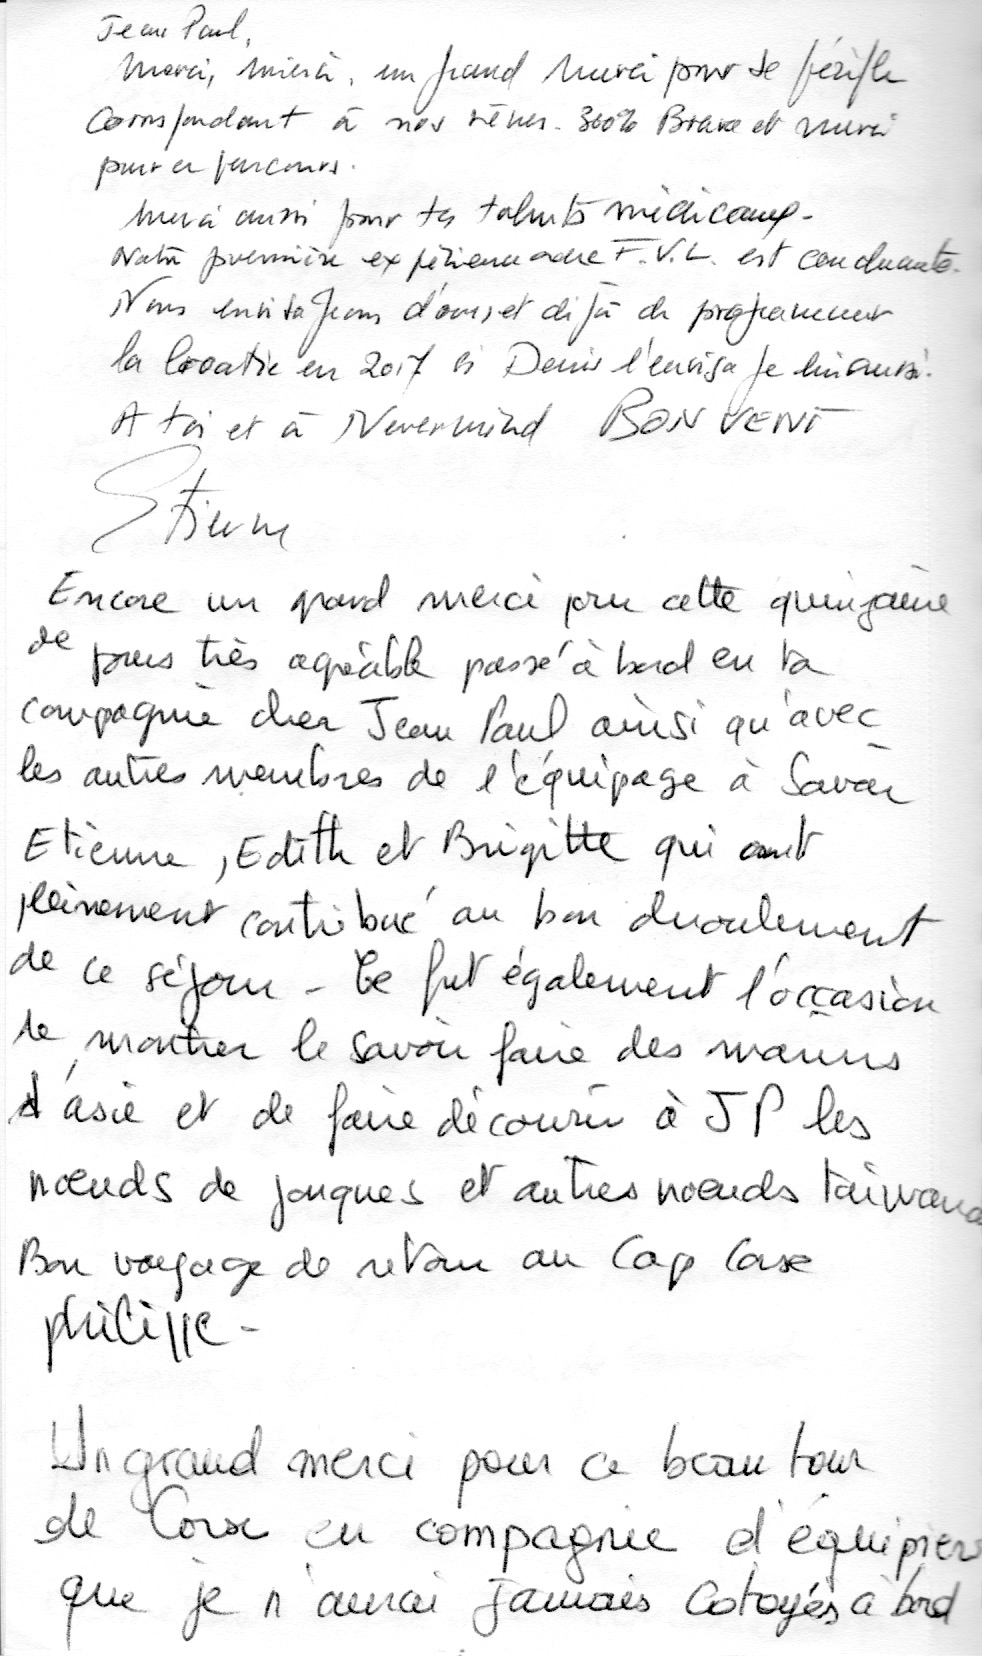 Jean Paul,
Merci, merci, un grand merci pour ce périple
correspondant à nos rêves. 300% Bravo et merci
pour ce parcours.
Merci aussi pour tes talents médicaux.
Notre première expérience avec F.V.L. est concluante.
Nous envisageons d'ores et déjà de programmer
la Croatie en 2017 si Denis l'envisage lui aussi.
A toi et à Nevermind BON VENT
Etienne
Encore un grand merci pour cette quinzaine
de jours très agréable passé à bord en ta
compagnie cher Jean Paul ainsi qu'avec
les autres membres de l'équipage à Savoir
Etienne, Edith et Brigitte qui ont
pleinement contribué au bon déroulement
de ce séjour - Ce fut également l'occasion
de montrer le savoir faire des marins
d'asie et de faire découvrir à JP les
nœuds de jonques et autres nœuds taiwanais
Bon voyage de retour au Cap Corse
philippe -
Un grand merci pour ce beau tour
de Corse en compagnie d'équipiers
que je n'aurai jamais cotoyés à bord